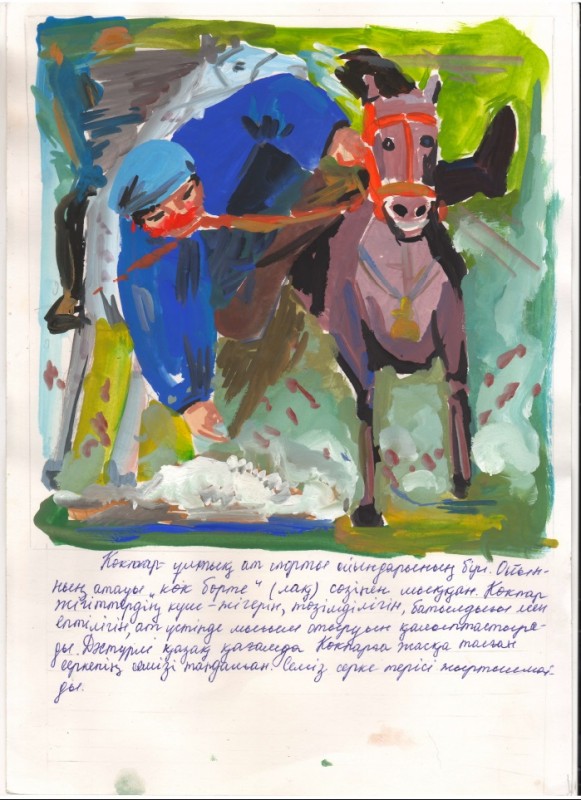 Көкпар - ұлттық ат спорты ойындарының бірі. Ойын-
ның атауы „көк бөрте" (лақ) сөзінен шыққан. Көкпар
жігіттердің күш-жігерін, төзімділігін, батылдығы мен
ептілігін, ат үстінде мығым отыруын қалыптастыра-
ды. Дәстүрлі қазақ қоғамда Көкпарға жасқа толған
серкенің семізі таңдалған. Семіз серке терісі жыртылмай-
ды.